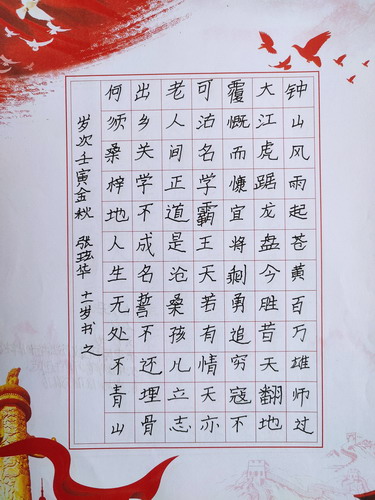 钟山风雨起苍黄百万雄师过
大江虎踞龙盘今胜昔天翻地
覆慨而慷宜将剩勇追穷寇不
可沽名学霸王天若有情天亦
老人间正道是沧桑孩儿立志
出乡关学不成名誓不还埋骨
何须桑梓地人生无处不青山
岁次壬寅金秋 张华 十一岁书之